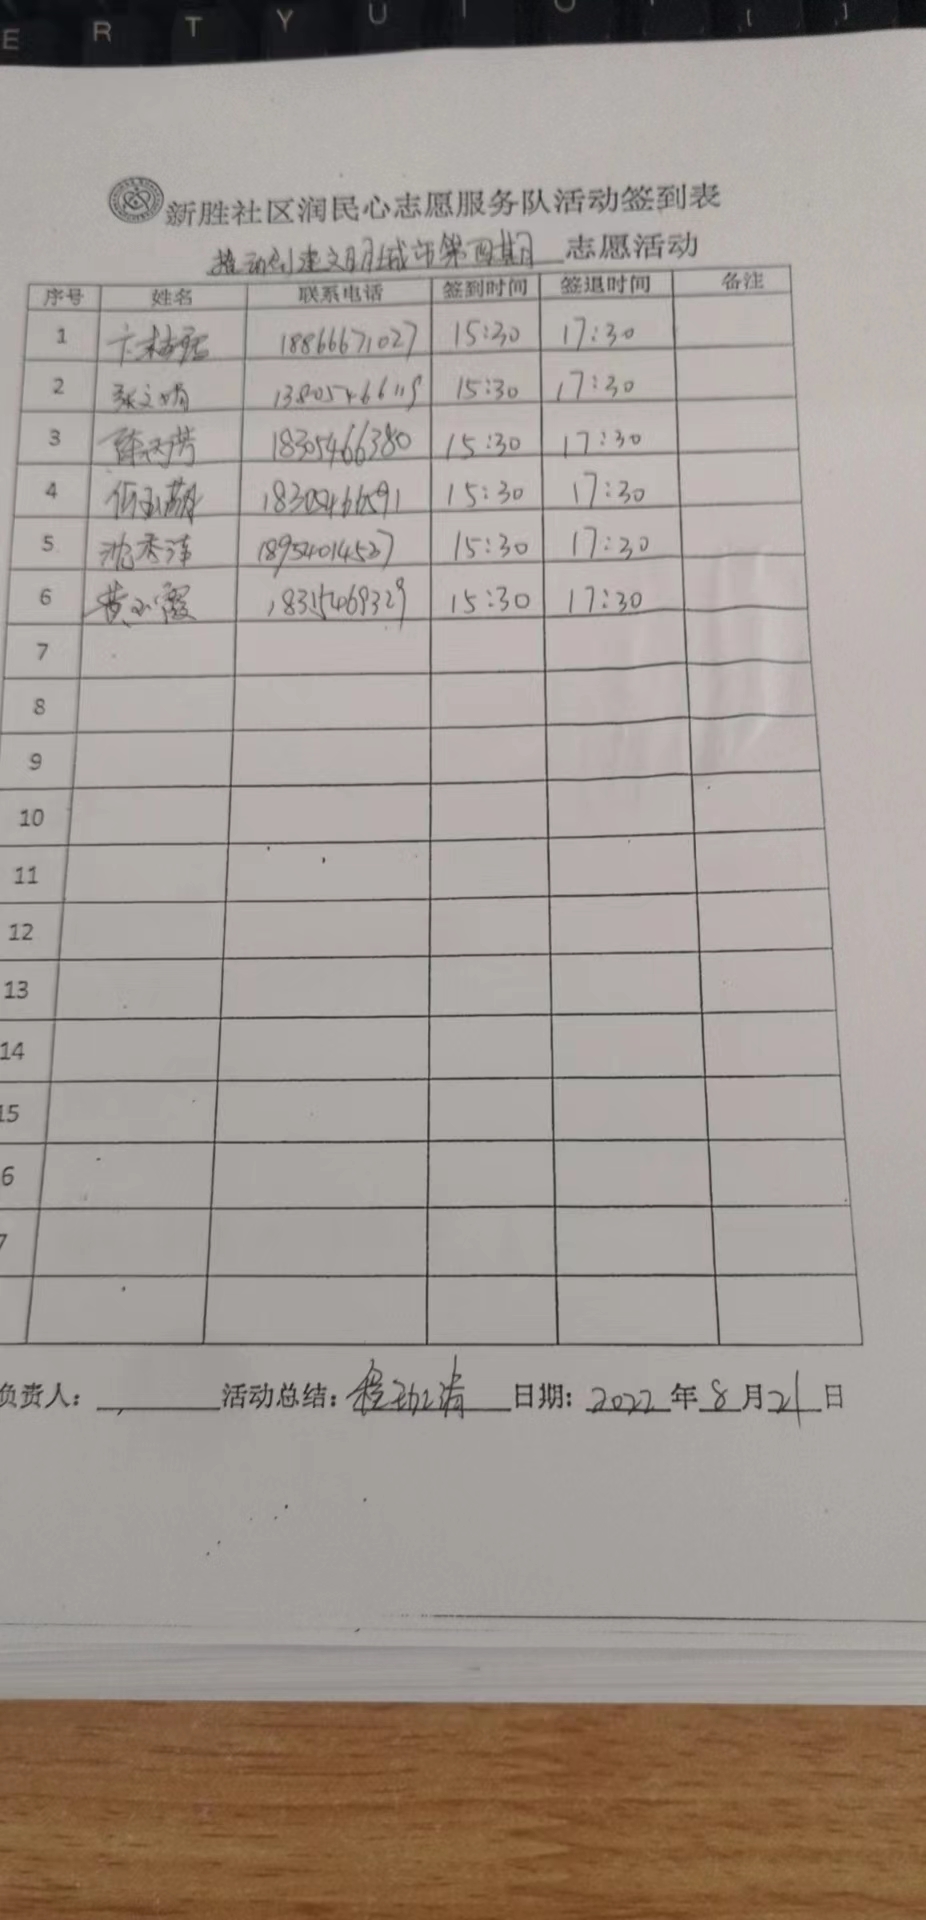 E R T Y U I O [ ]
新胜社区润民心志愿服务队活动签到表
推动创建文明城市第四期 志愿活动
序号 姓名 联系电话 签到时间 签退时间 备注
1 18866671027 15:30 17:30
2 张文娟 15:30 17:30
3 18305466380 15:30 17:30
4 15:30 17:30
5 沈秀萍 18954014527 15:30 17:30
6 黄小霞 15:30 17:30
7
8
9
10
11
12
13
14
15
6
7
负责人: 活动总结: 日期: 2022 年 8 月 21 日